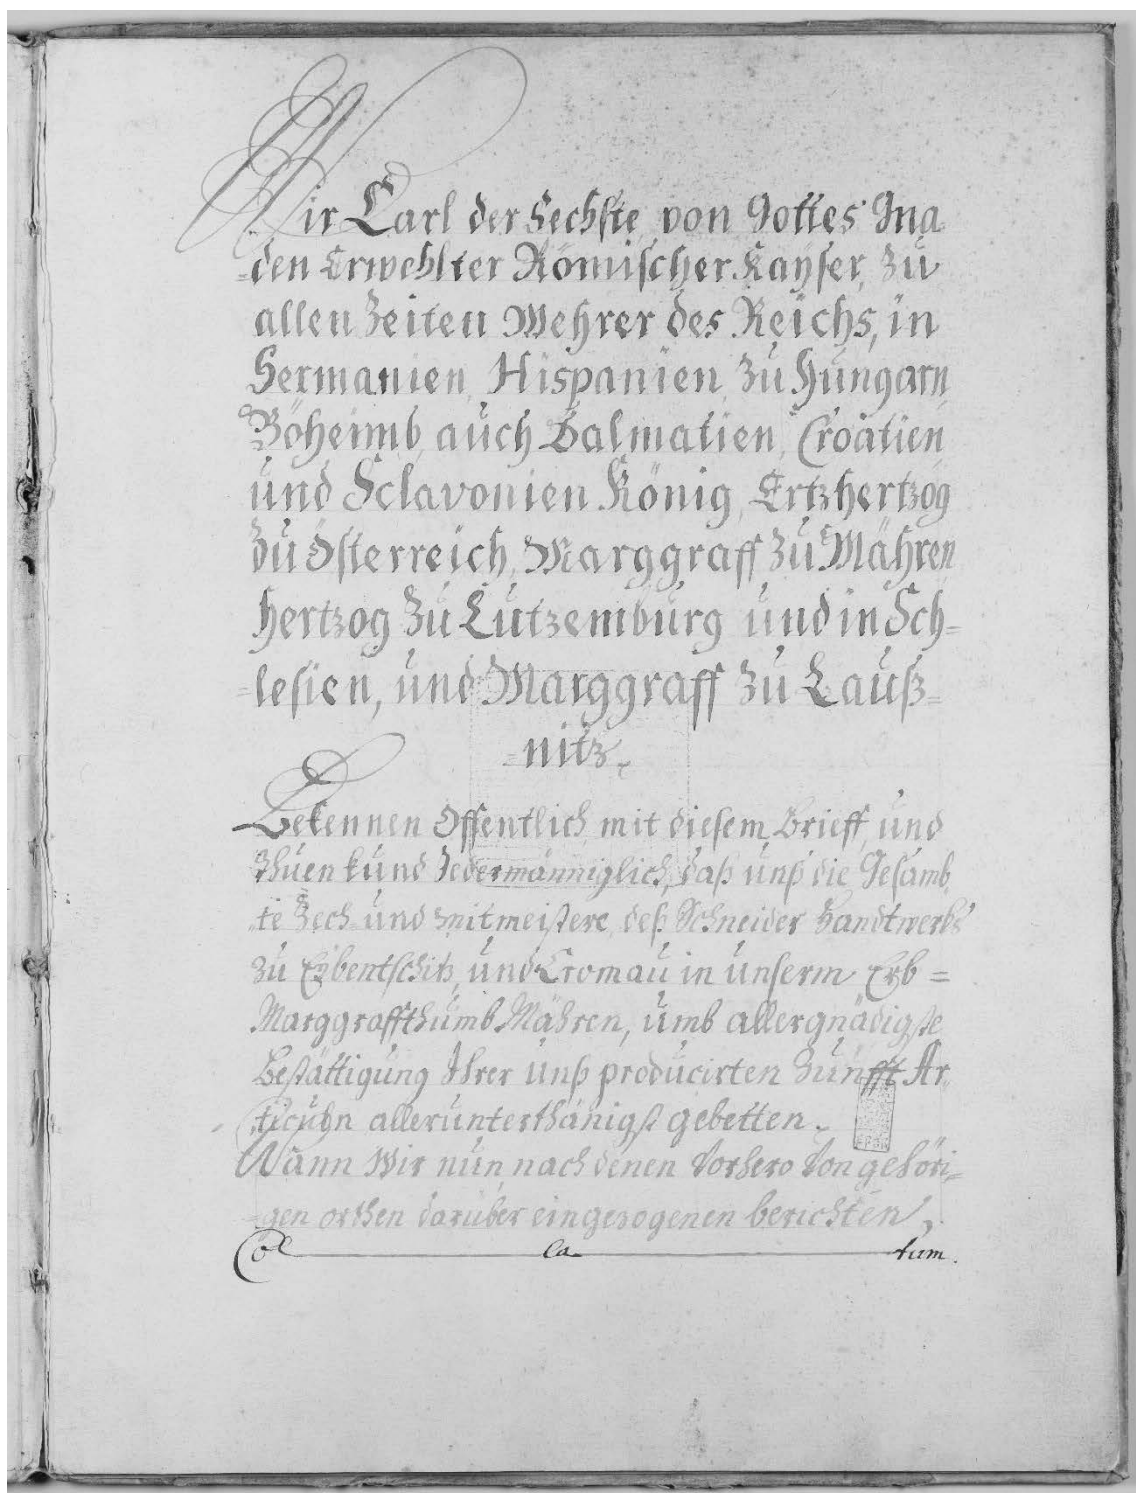 Wir Carl der Sechste, von Gottes Gna
=den Erwehlter Römischer Kayser, zu
allen Zeiten Mehrer des Reichs, in
Germanien, Hispanien, zu Hungarn,
Böheimb, auch Dalmatien, Croatien
und Sclavonien König, Ertzhertzog
zu Österreich, Marggraff zu Mähren
Hertzog zu Lützemburg und in Sch=
=lesien, und Marggraff zu Lauß=
=nitz.
Bekennen Offentlich mit diesem Brieff, und
Thuen kund Jedermänniglich, daß unß die Gesamb
te Zech und mitmeistere deß Schneider Handtwerks
zu Eybentschitz, und Cromau in unserm Erb=
Marggraffthumb Mähren, umb allergnädigste
Bestättigung Ihrer unß producirten Zunfft Ar
ticuln allerunterthänigst gebetten.
Wann Wir nun nach denen Vorhero Von gehöri=
=gen orthen darüber eingezogenen berichten,
Col la tum.